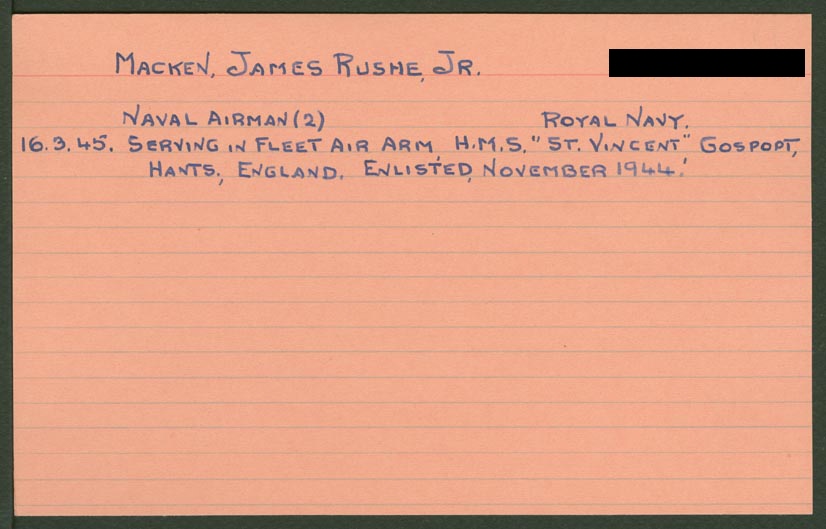 MACKEN, JAMES RUSHE, JR.
NAVAL AIRMAN (2) ROYAL NAVY.
16.3.45. SERVING IN FLEET AIR ARM, H.M.S. "ST. VINCENT" GOSPORT,
HANTS., ENGLAND. ENLISTED, NOVEMBER 1944.